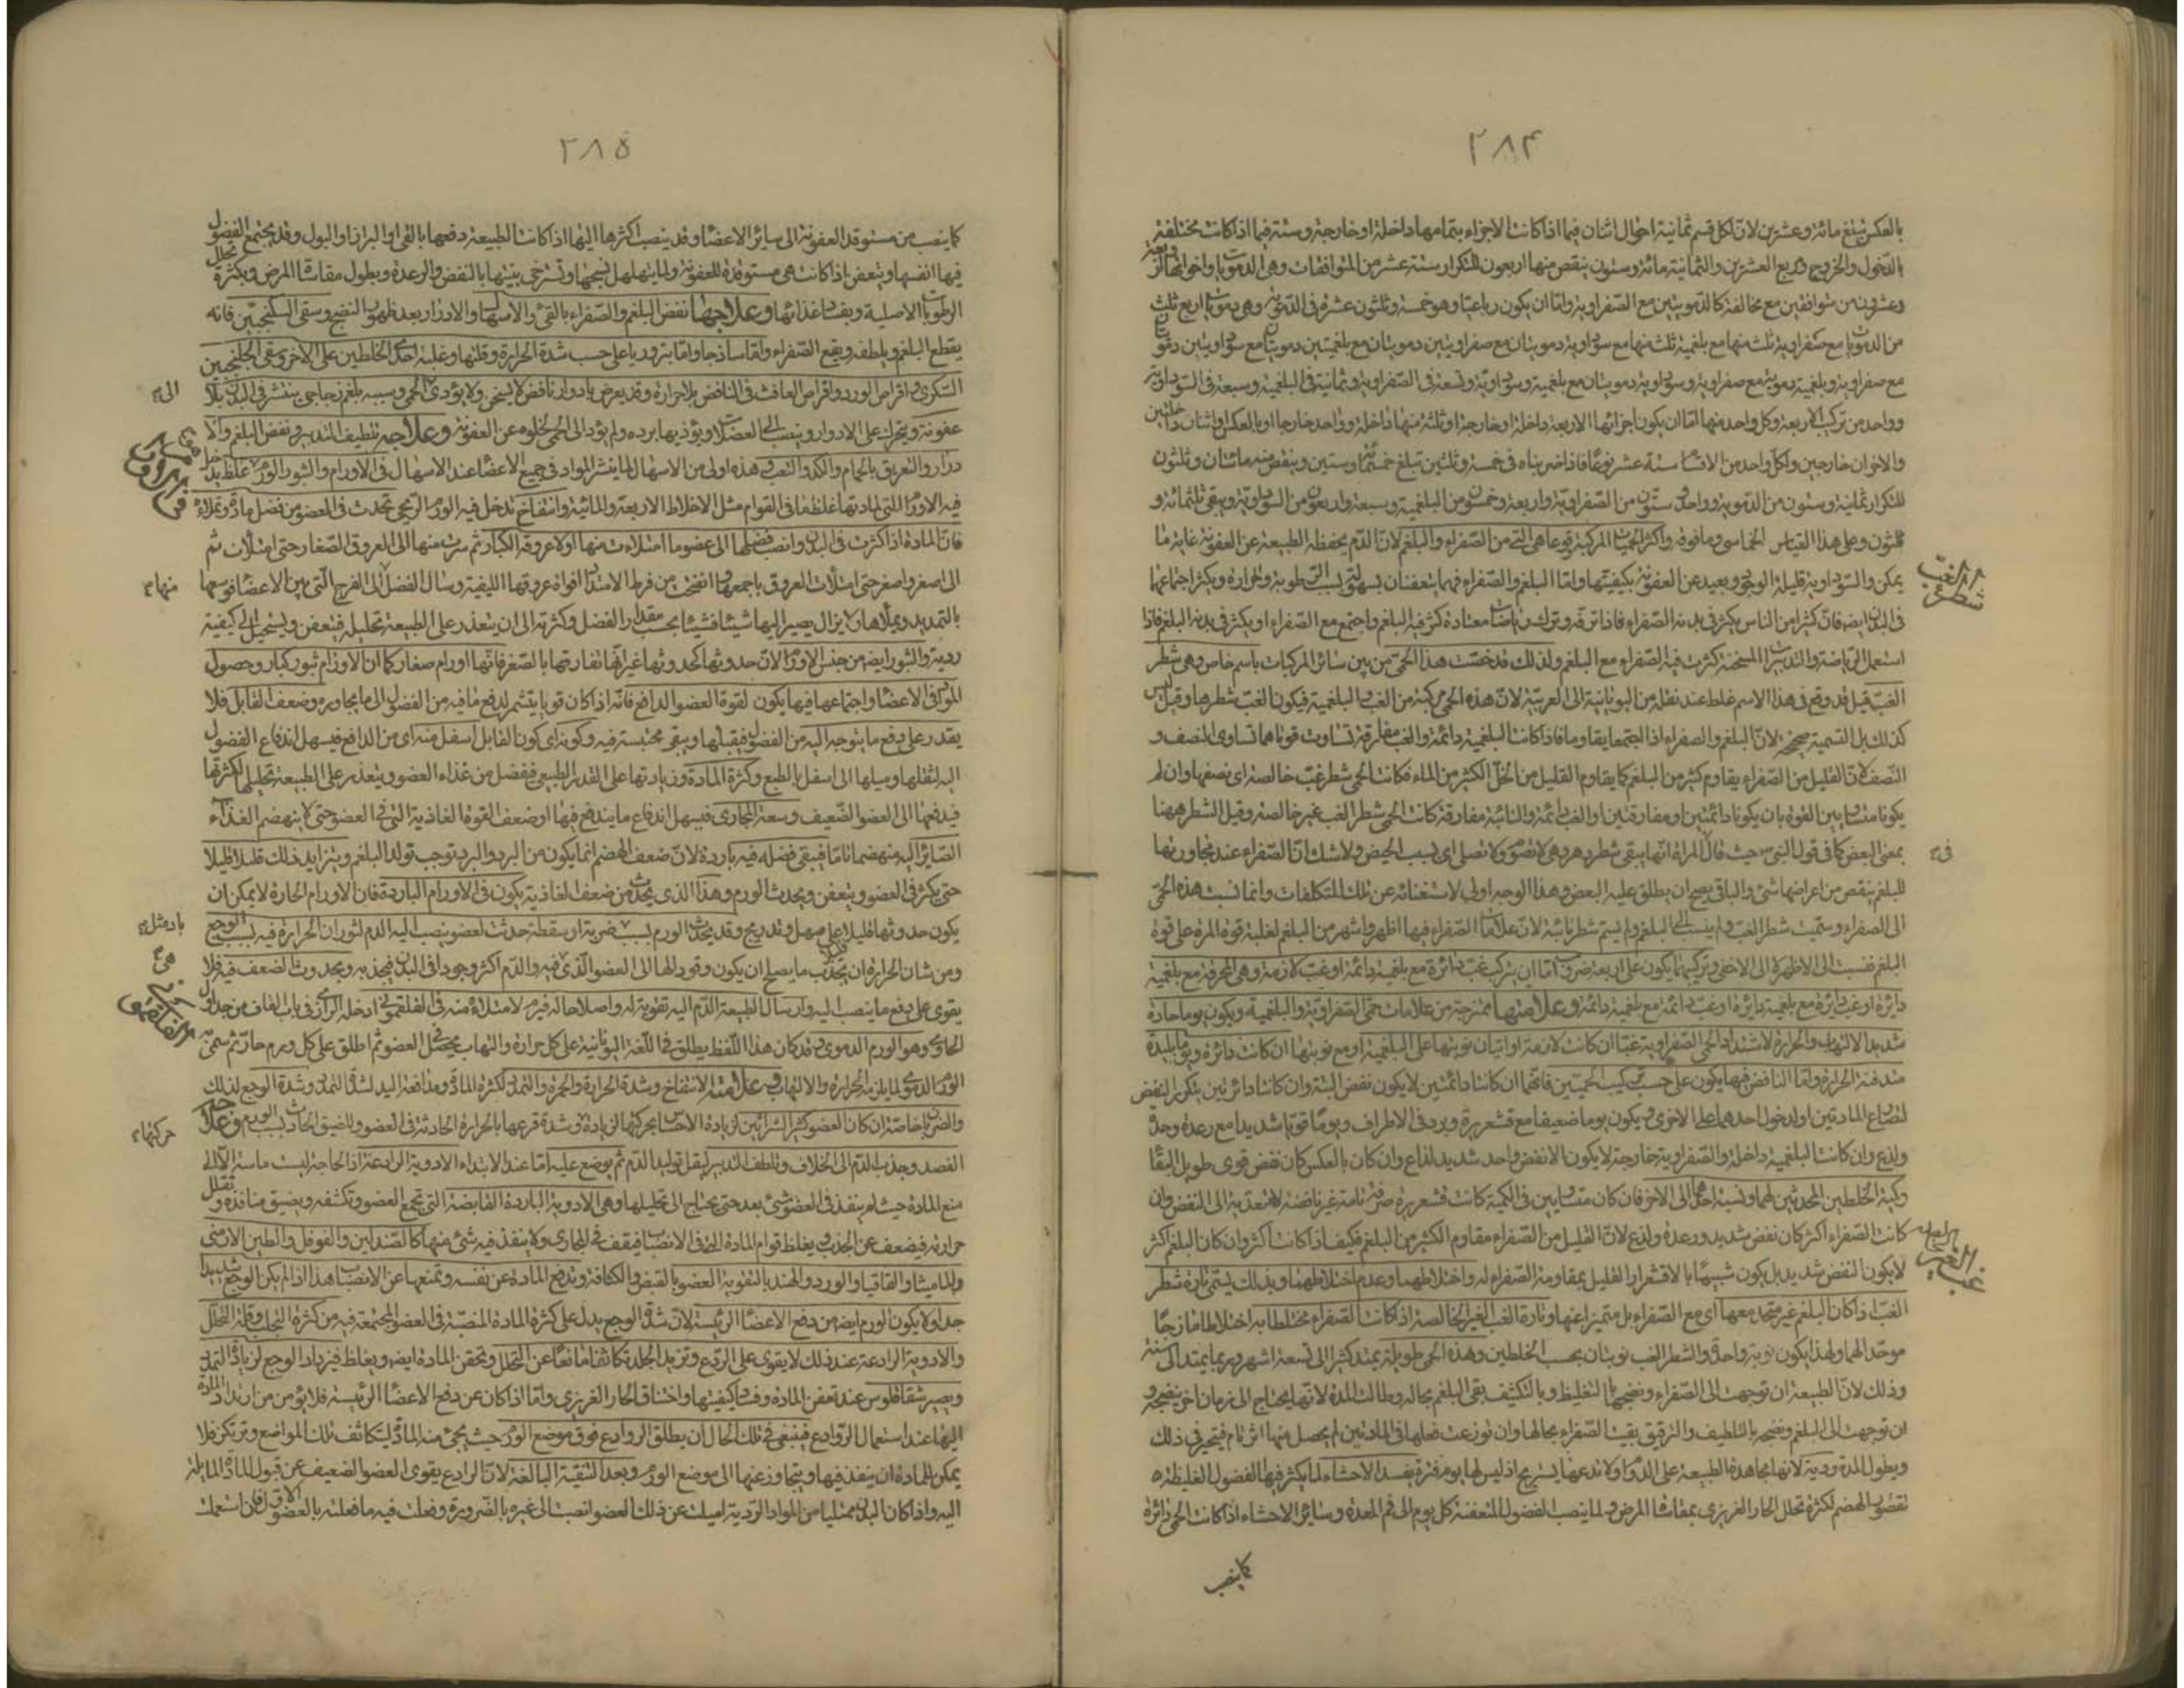 ۲۸۴
بالعكس يبلغ مائة وعشرين لان لكل قسم ثمانية احوال اثنان فيما اذا كانت الاجزاء بتمامها داخلة او خارجة وستة فيما اذا كانت مختلفة
بالدخول والخروج وربع العشرين والثمانية مائة وستون ينقص منها اربعون للتكرار ستة عشر من المتوافقات وهى الدموية واخواتها الاربعة
وعشرون من متوافقين مع مخالفة كالدمويتين مع الصفراوية واما ان يكون رباعيا وهو خمسة وثلثون عشرة فى الدموية وهى دموية اربع ثلث
من الدموية مع صفراوية ثلث منها مع بلغمية ثلث منها مع سوداوية دمويتان مع صفراويتين دمويتان مع بلغميتين دمويتان مع سوداويتين دمويتان
مع صفراوية وبلغمية دموية مع صفراوية وسوداوية دمويتان مع بلغمية وسوداوية وتسعة فى الصفراوية وثمانية فى البلغمية وسبعة فى السوداوية
وواحد من تركيب الاربعة وكل واحد منها اما ان يكون اجزائها الاربعة داخلة او خارجة او ثلثة منها داخلة وواحد خارجا او بالعكس او اثنان داخلين
والاخران خارجين ولكل واحد من الاقسام ستة عشر نوعا فاذا ضربناه فى خمسة وثلثين تبلغ خمسمائة وستين وينقص منه مائتان وثلثون
للتكرار ثمانية وستون من الدموية وواحد وستون من الصفراوية واربعة وخمسون من البلغمية وسبعة واربعون من السوداوية ويبقى ثلثمائة و
ثلثون وعلى هذا القياس الخماسى وما فوقه واكثر الحميات المركبة وقوعا هى التى من الصفراء والبلغم لان الدم يحفظه الطبيعة عن العفونة غاية ما
يمكن والسوداوية قليلة الوجود وبعيد عن العفونة بكيفيتها واما البلغم والصفراء فهما يتعفنان بسهولة بسبب الرطوبة والحرارة ويكثر اجتماعهما
فى البدن ايضا فان كثيرا من الناس يكثر فى بدنه الصفراء فاذا ترفه وترك رياضات معتادة كثر فيه البلغم واجتمع مع الصفراء او يكثر فى بدنه البلغم فاذا
استعمل الرياضة والتدبيرات المسخنة كثرت فيه الصفراء مع البلغم ولذلك قد خصت هذه الحمى من بين سائر المركبات باسم خاص وهى شطر
الغب قيل قد وقع فى هذا الاسم غلط عند نقله من اليونانية الى العربية لان هذه الحمى مركبة من الغب والبلغمية فيكون الغب شطرها وقيل ليس
كذلك بل التسمية صحيحة لان البلغم والصفراء اذا اجتمعا يقاوما فاذا كانت البلغمية دائمة والغب مفارقة تساوت قوتاهما تساوى المنصف و
النصف لان القليل من الصفراء يقاوم كثير من البلغم كما يقاوم القليل من الخل الكثير من الماء فكانت الحمى شطر غب خالصة اى نصفها وان لم
يكونا متساويين القوة بان يكونا دائمتين او مفارقتين او الغب دائمة والنائبة مفارقة كانت الحمى شطر الغب غير خالصة وقيل الشطر ههنا
بمعنى البعض كما فى قول النبى حيث قال المراة انها يبقى شطر دهرها لا تصوم ولا تصلى اى بسبب الحيض ولا شك ان الصفراء عند مجاورتها
للبلغم ينقص من اعراضها شئ والباقى يصح ان يطلق عليه البعض وهذا الوجه اولى لاستغنائه عن تلك المتكلفات وانما نسبت هذه الحمى
الى الصفراء وسميت شطر الغب ولم ينسب الى البلغم ولم يسم شطر نائبة لان علامات الصفراء فيها اظهر واشهر من البلغم لغلبة قوة المرة على قوة
البلغم فنسبت الى الاظهر لا الى الاخفى وتركيبها يكون على اربعة ضروب اما ان يتركب غب دائرة مع بلغمية دائمة او غب لازمة وهى المحرقة مع بلغمية
دائرة او غب دائرة مع بلغمية دائرة او غب دائمة مع بلغمية دائمة وعلامتها ممتزجة من علامات حمى الصفراوية والبلغمية ويكون يوما حادة
شديد الالتهاب والحرارة لاشتداد الحمى الصفراوية غبا ان كانت لازمة او اتيان نوبتها على البلغمية او مع نوبتها ان كانت دائرة ويوما بليدة
مندفنة الحرارة واما النافض فيها يكون على حسب تركيب الحميتين فانهما ان كانتا دائمتين لا يكون نفض البتة وان كانتا دائرتين يتكرر النفض
لصراع المادتين او لدخول احدهما على الاخرى ويكون يوما ضعيفا مع قشعريرة وبرد فى الاطراف ويوما قويا شديدا مع رعدة وحدة
ولذع وان كانت البلغمية داخلة والصفراوية خارجة لا يكون الا نفض واحد شديد لذاع وان كان بالعكس كان نفض قوى طويل البقاء
وكمية الخلطين المحدثين لهما ونسبة احدهما الى الاخر فان كان متساويين فى الكمية كانت قشعريرة صرفة تامة غير ناقصة لا متعدية الى النفض وان
كانت الصفراء اكثر كان نفض شديد ورعدة ولذع لان القليل من الصفراء مقاوم الكثير من البلغم فكيف اذا كانت اكثر وان كان البلغم اكثر
لا يكون النفض شديد بل يكون شبيها بالاقشعرار القليل بمقاومة الصفراء له واختلاطهما وعدم اختلاطهما وبذلك يسمى تارة شطر
الغب اذا كان البلغم غير متحد معها اى مع الصفراء بل متميزا عنها وتارة الغب الغير الخالصة اذا كانت الصفراء مختلطا به اختلاطا مازجا
موحدا لهما ولهذا يكون نوبة واحدة والشطر الغب نوبتان بحسب الخلطين وهذه الحمى طويلة يمتد كثيرا الى تسعة اشهر وربما يمتد الى سنة
وذلك لان الطبيعة ان توجهت الى الصفراء ونضجها بالتغليظ وبالتكثيف بقى البلغم بحاله وطالت المدة لانها يحتاج الى زمان اخر ينضجه و
ان توجهت الى البلغم ونضجه بالتلطيف والترقيق بقيت الصفراء بحالها وان توزعت فعلها فى المادتين لم يحصل منها اثر تام فيتحير فى ذلك
ويطول المدة ردية لانها مجاهدة الطبيعة على الدوام ولا تدعها يستريح اذ ليس لها يوم فترة يفسد الاحشاء لما يكثر فيها الفضول الغليظة
نقصو الهضم لكثرة تحلل الحار الغريزى بمقاساة المرض ولما ينصب الفضول المتعفنة كل يوم الى فم المعدة وسائر الاحشاء اذا كانت الحمى دائرة
شطر الغب
فى
الغب الغير
كما ينصب
۲۸۵
كما ينصب من مستوقد العفونة الى سائر الاعضاء وقد ينصب اكثرها اليها اذا كانت الطبيعة دفعها بالقئ او البراز او البول وقد يجتمع الفضول
فيها انفسها ويتعفن اذا كانت هى مستوقدة للعفونة ولما يتهلهل نسجها وتسترخى بنيتها بالنفض والرعدة وبطول مقاساة المرض وبكثرة تحلل
الرطوبات الاصلية وبفساد غذائها وعلاجها نفض البلغم والصفراء بالقئ والاسهال والادرار بعد ظهور النضج وسقى السكنجبين فانه
يقطع البلغم ويلطفه ويقمع الصفراء واما ساذجا واما بزوريا على حسب شدة الحرارة وقلتها وغلبة احدى الخلطين على الاخر وسقى الجلنجبين
السكرى واقراص الورد واقراص الغافث فى النافض بلا حرارة وقد يعرض بادوار نافض لا يسخن ولا يؤدى الحمى وسببه بلغم زجاجى ينتشر فى البدن بلا
عفونة ويتحرك على الادوار وينصب الى العضلات ويؤذيها ببرده ولم يؤد الى الحمى لخلوه عن العفونة وعلاجه تلطيف التدبير ونفض البلغم والا
درار والتعريق بالحمام والكد والتعب وهذه اولى من الاسهال لما ينشر المواد فى جميع الاعضاء عند الاسهال فى الاورام والبثور الورم غلظ يدخل
فيه الاورام التى لمادتها غلظ ما فى القوام مثل الاخلاط الاربعة والمائية وانتفاخ تدخل فيه الورم الريحى تحدث فى العضو من فضل مادة وتملاءه
فان المادة اذا كثرت فى البدن وانصب فضلها الى عضو ما امتلاءت منها اولا عروقه الكبار ثم سرت منها الى العروق الصغار حتى امتلأت ثم
الى اصغر واصغر حتى امتلأت العروق باجمعها وانفتحت من فرط الامتداد افواه عروقها الليفية وسال الفضل الى الفرج التى بين الاعضاء فوسعها
بالتمديد ويملأها ولا يزال يصير اليها شيئا فشيئا بحسب مقدار الفضل وكثرته الى ان يتعذر على الطبيعة تحليله فتعفن ويستحيل الى كيفية
ردية والبثور ايضا من جنس الاورام لان حدوثها كحدوثها غير انها تفارقها بالصغر فانها اورام صغار كما ان الاورام بثور كبار وحصول
المواد فى الاعضاء واجتماعها فيها يكون لقوة العضو الدافع فانه اذا كان قويا يتشمر لدفع ما فيه من الفضول الى ما يجاوره وضعف القابل فلا
يقدر على دفع ما يتوجه اليه من الفضول فيقبلها ويبقى محتبسة فيه وكونه اى كون القابل اسفل منه اى من الدافع فيسهل اندفاع الفضول
اليه لثقلها وميلها الى اسفل بالطبع وكثرة المادة وزيادتها على القدر الطبيعى فيفضل من غذاء العضو ويتعذر على الطبيعة تحليلها لكثرتها
فيدفعها الى العضو الضعيف وسعة المجارى فيسهل اندفاع ما يندفع فيها او ضعف القوة الغاذية التى فى العضو حتى لا ينهضم الغذاء
الصائر اليه منهضما تاما فيبقى فضلة فيه باردة لان ضعف الهضم انما يكون من البرد والبرد توجب تولد البلغم ويتزايد ذلك قليلا قليلا
حتى يكثر فى العضو ويتعفن ويحدث الورم وهذا الذى يحدث من ضعف الغاذية يكون فى الاورام الباردة فان الاورام الحارة لا يمكن ان
يكون حدوثها قليلا على مهل وتدريج وقد يحدث الورم بسبب ضربة او سقطة حدثت لعضو ينصب اليه الدم لثوران الحرارة فيه بسبب الوجع
ومن شان الحرارة ان تجذب ما يصلح ان يكون وقودا لها الى العضو الذى فيه والدم اكثر وجودا فى البدن فيجذبه ويحدث الضعف فيه فلا
يقوى على دفع ما ينصب اليه وارسال الطبيعة الدم اليه تقوية له واصلاحا له فيرم لامتلاءه منه فى الفلغمونى ادخله الرازى فى باب الفاء من جداول
الحاوى وهو الورم الدموى وقد كان هذا اللفظ يطلق فى اللغة اليونانية على كل حرارة والتهاب يحصل العضو ثم اطلق على كل ورم حار ثم سمى به
الورم الدموى لما يلزمه الحرارة والالتهاب وعلامته الانتفاخ وشدة الحرارة والحمرة والتمدد لكثرة المادة ومدافعة اليد لشدة التمدد وشدة الوجع لذلك
والضربان خاصة ان كان العضو كثير الشرائين لزيادة الاحساس بحركتها لزيادة وشدة قرعها بالحرارة الحادثة فى العضو والضيق الحادث بسبب الورم وعلاجه
الفصد وجذب الدم الى الخلاف وتلطف التدبير ليقل توليد الدم ثم يوضع عليه اما عند الابتداء الادوية الرادعة اذ الحاجة ليست ماسة الا الى
منع المادة حيث لم ينفذ فى العضو شئ بعد حتى يحتاج الى تحليلها وهى الادوية الباردة القابضة التى تجمع العضو وتكثفه ويضيق منافذه وتقلل
حرارته فيضعف عن الجذب ويغلظ قوام المادة التى فى الانصباب فيقف فى المجارى ولا ينفذ فيه شئ منها كالصندلين والفوفل والطين الارمنى
والماميثا والقاقيا والورد والهندبا لتقوية العضو بالقبض والكثافة وتدفع المادة عن نفسه وتمنعها عن الانصباب هذا اذا لم يكن الوجع شديدا
جدا ولا يكون الورم ايضا من دفع الاعضاء الرئيسة لان شدة الوجع يدل على كثرة المادة المنصبة فى العضو المجتمعة فيه من كثرة التحلل وقلة التحلل
والادوية الرادعة عند ذلك لا يقوى على الردع وتزيد الجلد تكاثفا مانعا عن التحلل وتحقن المادة ايضا ويغلظ فيزداد الوجع لزيادة التمدد
ويصير شقاقلوس عند تعفن المادة وفساد كيفيتها واختناق الحار الغريزى واما اذا كان عن دفع الاعضاء الرئيسة فلا يؤمن من ارتداد المادة
اليها عند استعمال الروادع فينبغى فى تلك الحال ان يطلق الروادع فوق موضع الورم حيث يجئ منه المادة ليتكاثف تلك المواضع ويتركز فلا
يمكن للمادة ان ينفذ فيها ويتجاوز عنها الى موضع الورم وبعد التنقية البالغة لان الرادع يقوى العضو الضعيف عن قبول المادة المايلة
اليه واذا كان البدن ممتليا من المواد الردية اميلت عن ذلك العضو انصبت الى غيره بالضرورة وفعلت فيه ما فعلته بالعضو الاول فان استعملت
الى
منها
بارد مثل
هى
الفلغمونى
حركتها